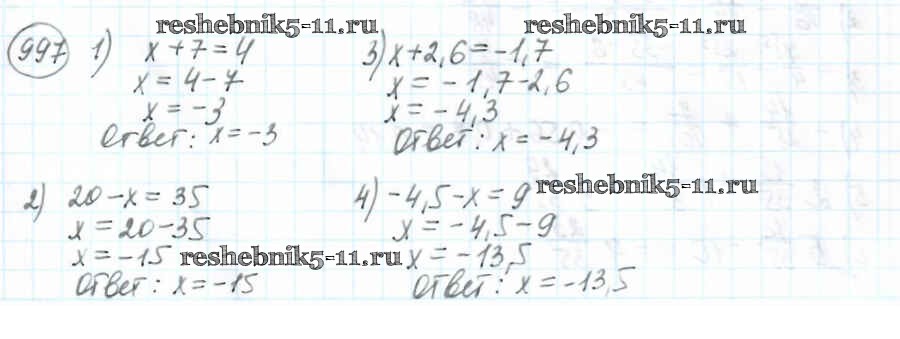 reshebnik5-11.ru
reshebnik5-11.ru
997 1) x + 7 = 4
x = 4 - 7
x = -3
Ответ: x = -3
3) x + 2,6 = -1,7
x = -1,7 - 2,6
x = -4,3
Ответ: x = -4,3
2) 20 - x = 35
x = 20 - 35
x = -15
Ответ: x = -15
reshebnik5-11.ru
4) -4,5 - x = 9
x = -4,5 - 9
x = -13,5
Ответ: x = -13,5
reshebnik5-11.ru